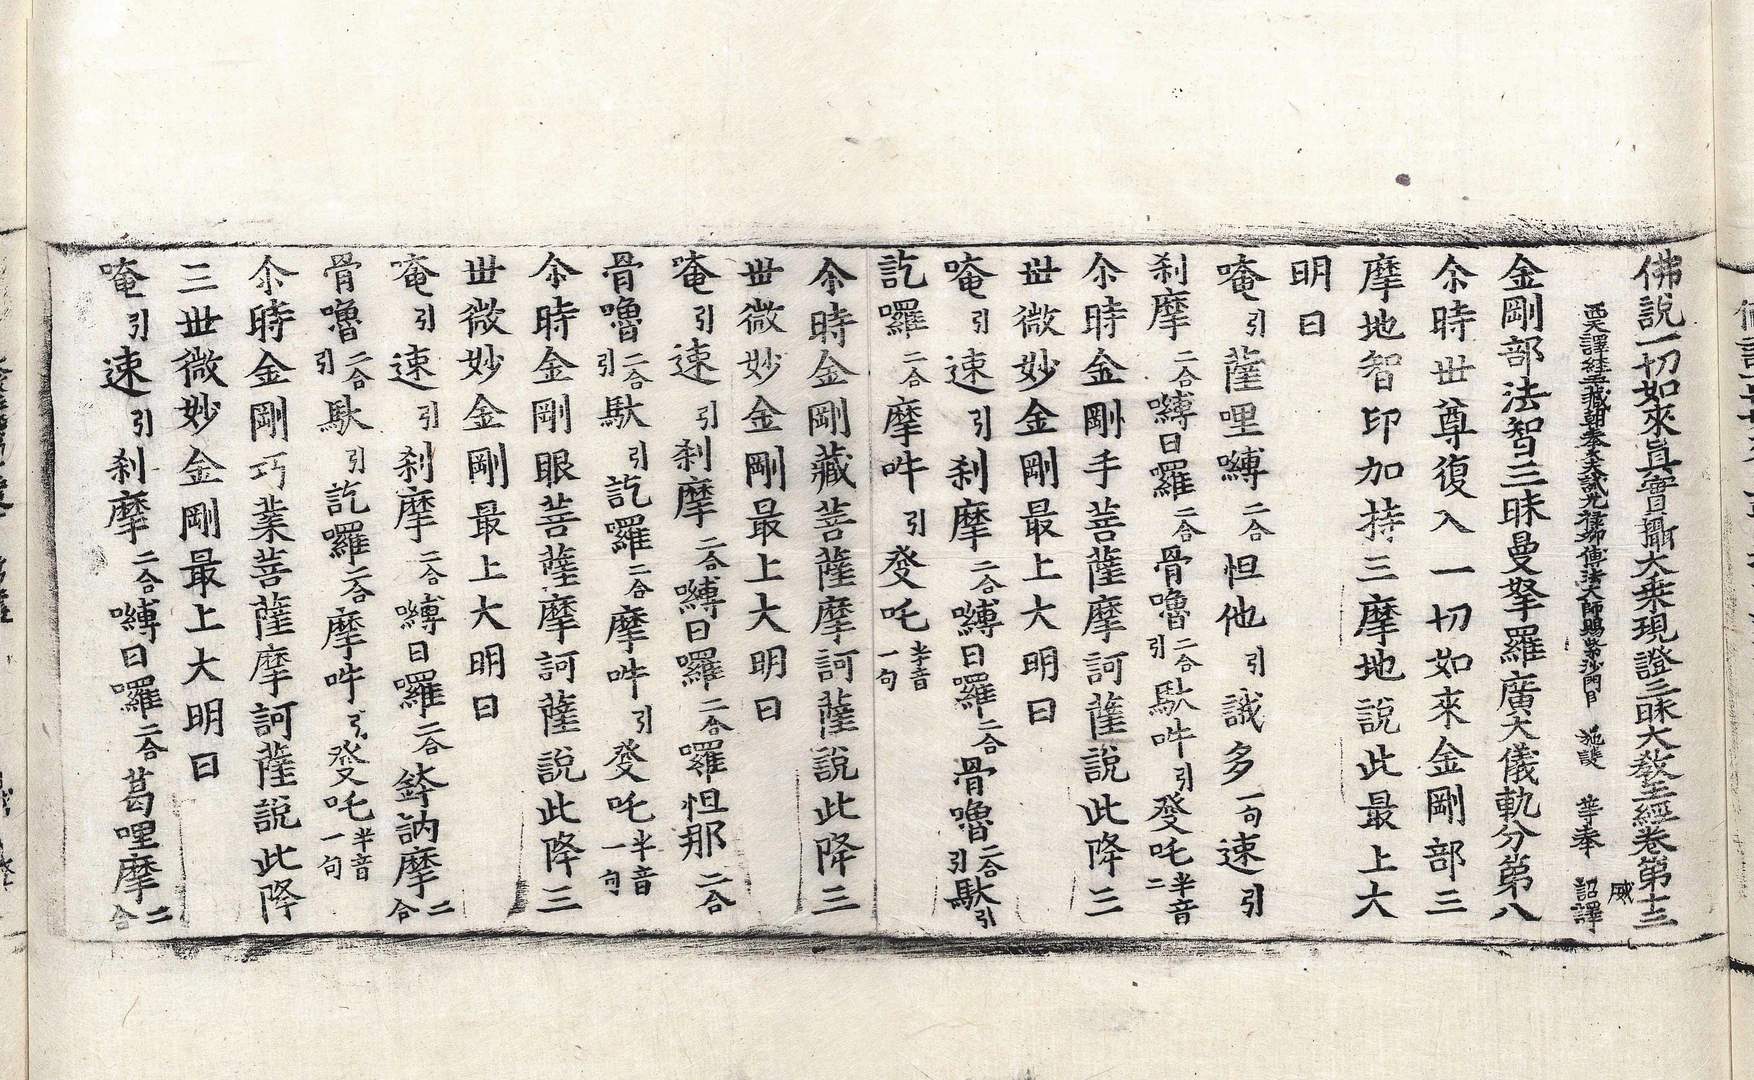 佛說一切如來眞實攝大乗現證三昧大敎王經卷第十三 咸
西天譯經三藏朝奉大夫試光禄卿傳法大師賜紫沙門臣 施護 等奉 詔譯
金剛部法智三昧曼拏羅廣大儀軌分第八
尒時世尊復入一切如來金剛部三
摩地智印加持三摩地說此最上大
明曰
唵引薩哩嚩二合怛他引誐多一句速引
刹摩二合嚩日羅二合骨嚕二合引馱吽引發吒半音二
尒時金剛手菩薩摩訶薩說此降三
世微妙金剛最上大明曰
唵引速引刹摩二合嚩日羅二合骨嚕二合引馱引
訖囉二合摩吽引發吒半音一句
尒時金剛藏菩薩摩訶薩說此降三
世微妙金剛最上大明曰
唵引速引刹摩二合嚩日羅二合囉怛那二合
骨嚕二合引馱引訖囉二合摩吽引發吒半音一句
尒時金剛眼菩薩摩訶薩說此降三
世微妙金剛最上大明曰
唵引速引刹摩二合嚩日羅二合鉢訥摩二合
骨嚕二合引馱引訖囉二合摩吽引發吒半音一句
尒時金剛巧業菩薩摩訶薩說此降
三世微妙金剛最上大明曰
唵引速引刹摩二合嚩日囉二合葛哩摩二合